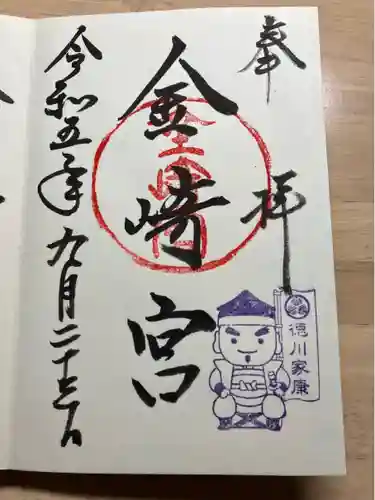 奉拝
金崎宮
徳川家康
令和五年九月二十三日